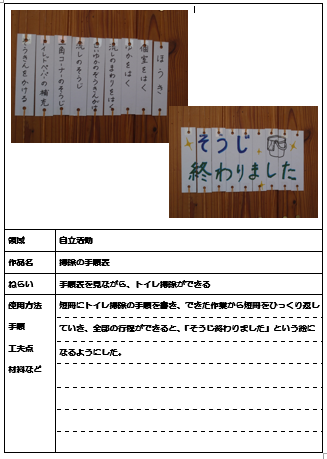 ほうき
個室をはく
ゆかをはく
流しのまわりをはく
ゆかのぞうきんがけ
流しのそうじ
コーナーのそうじ
トイレットペーパーの補充
ぞうきんをかける
そうじ
終わりました
領域 自立活動
作品名 掃除の手順表
ねらい 手順表を見ながら、トイレ掃除ができる
使用方法 短冊にトイレ掃除の手順を書き、できた作業から短冊をひっくり返し
手順 ていき、全部の行程ができると、「そうじ終わりました」という絵に
工夫点 なるようにした。
材料など